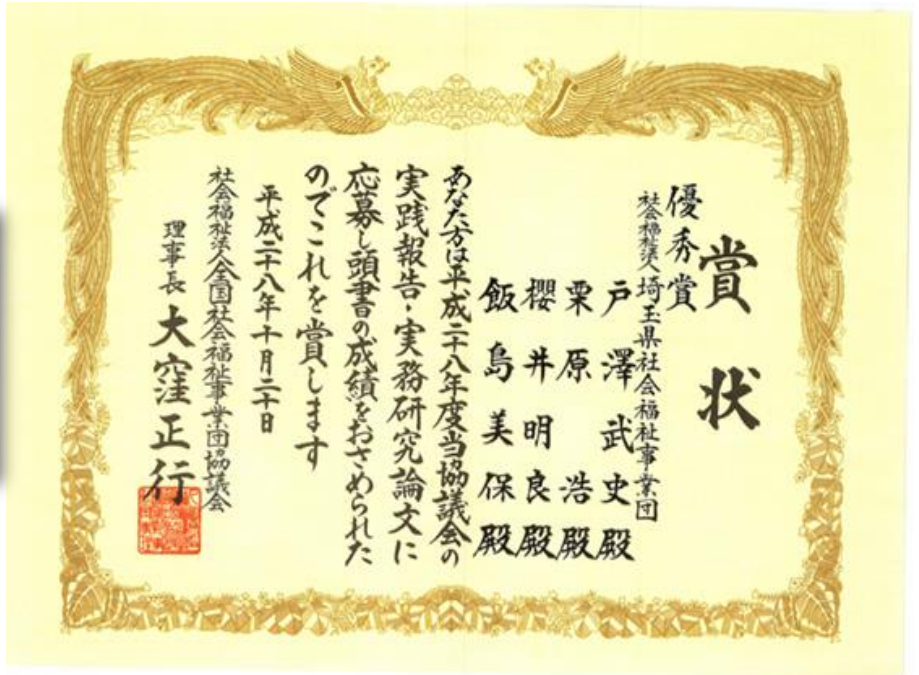 賞状
優秀賞
社会福祉法人埼玉県社会福祉事業団
戸澤武史殿
栗原浩殿
櫻井明良殿
飯島美保殿
あなた方は平成二十八年度当協議会の
実践報告・実務研究論文に
応募し頭書の成績をおさめられた
のでこれを賞します
平成二十八年十月二十日
社会福祉法人全国社会福祉事業団協議会
理事長 大窪正行